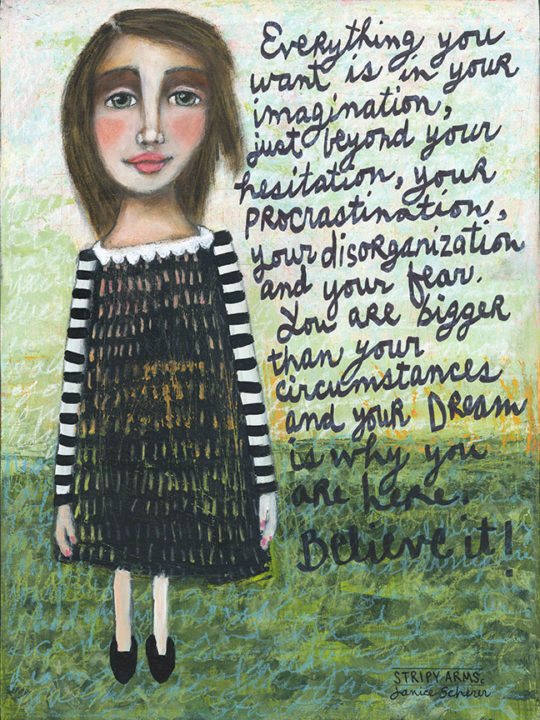 Everything you
want is in your
imagination,
just beyond your
hesitation, your
PROCRASTINATION,
your disorganization
and your fear.
You are bigger
than your
circumstances
and your Dream
is why you
are here.
Believe it!
STRIPY ARMS
Janice Scherer